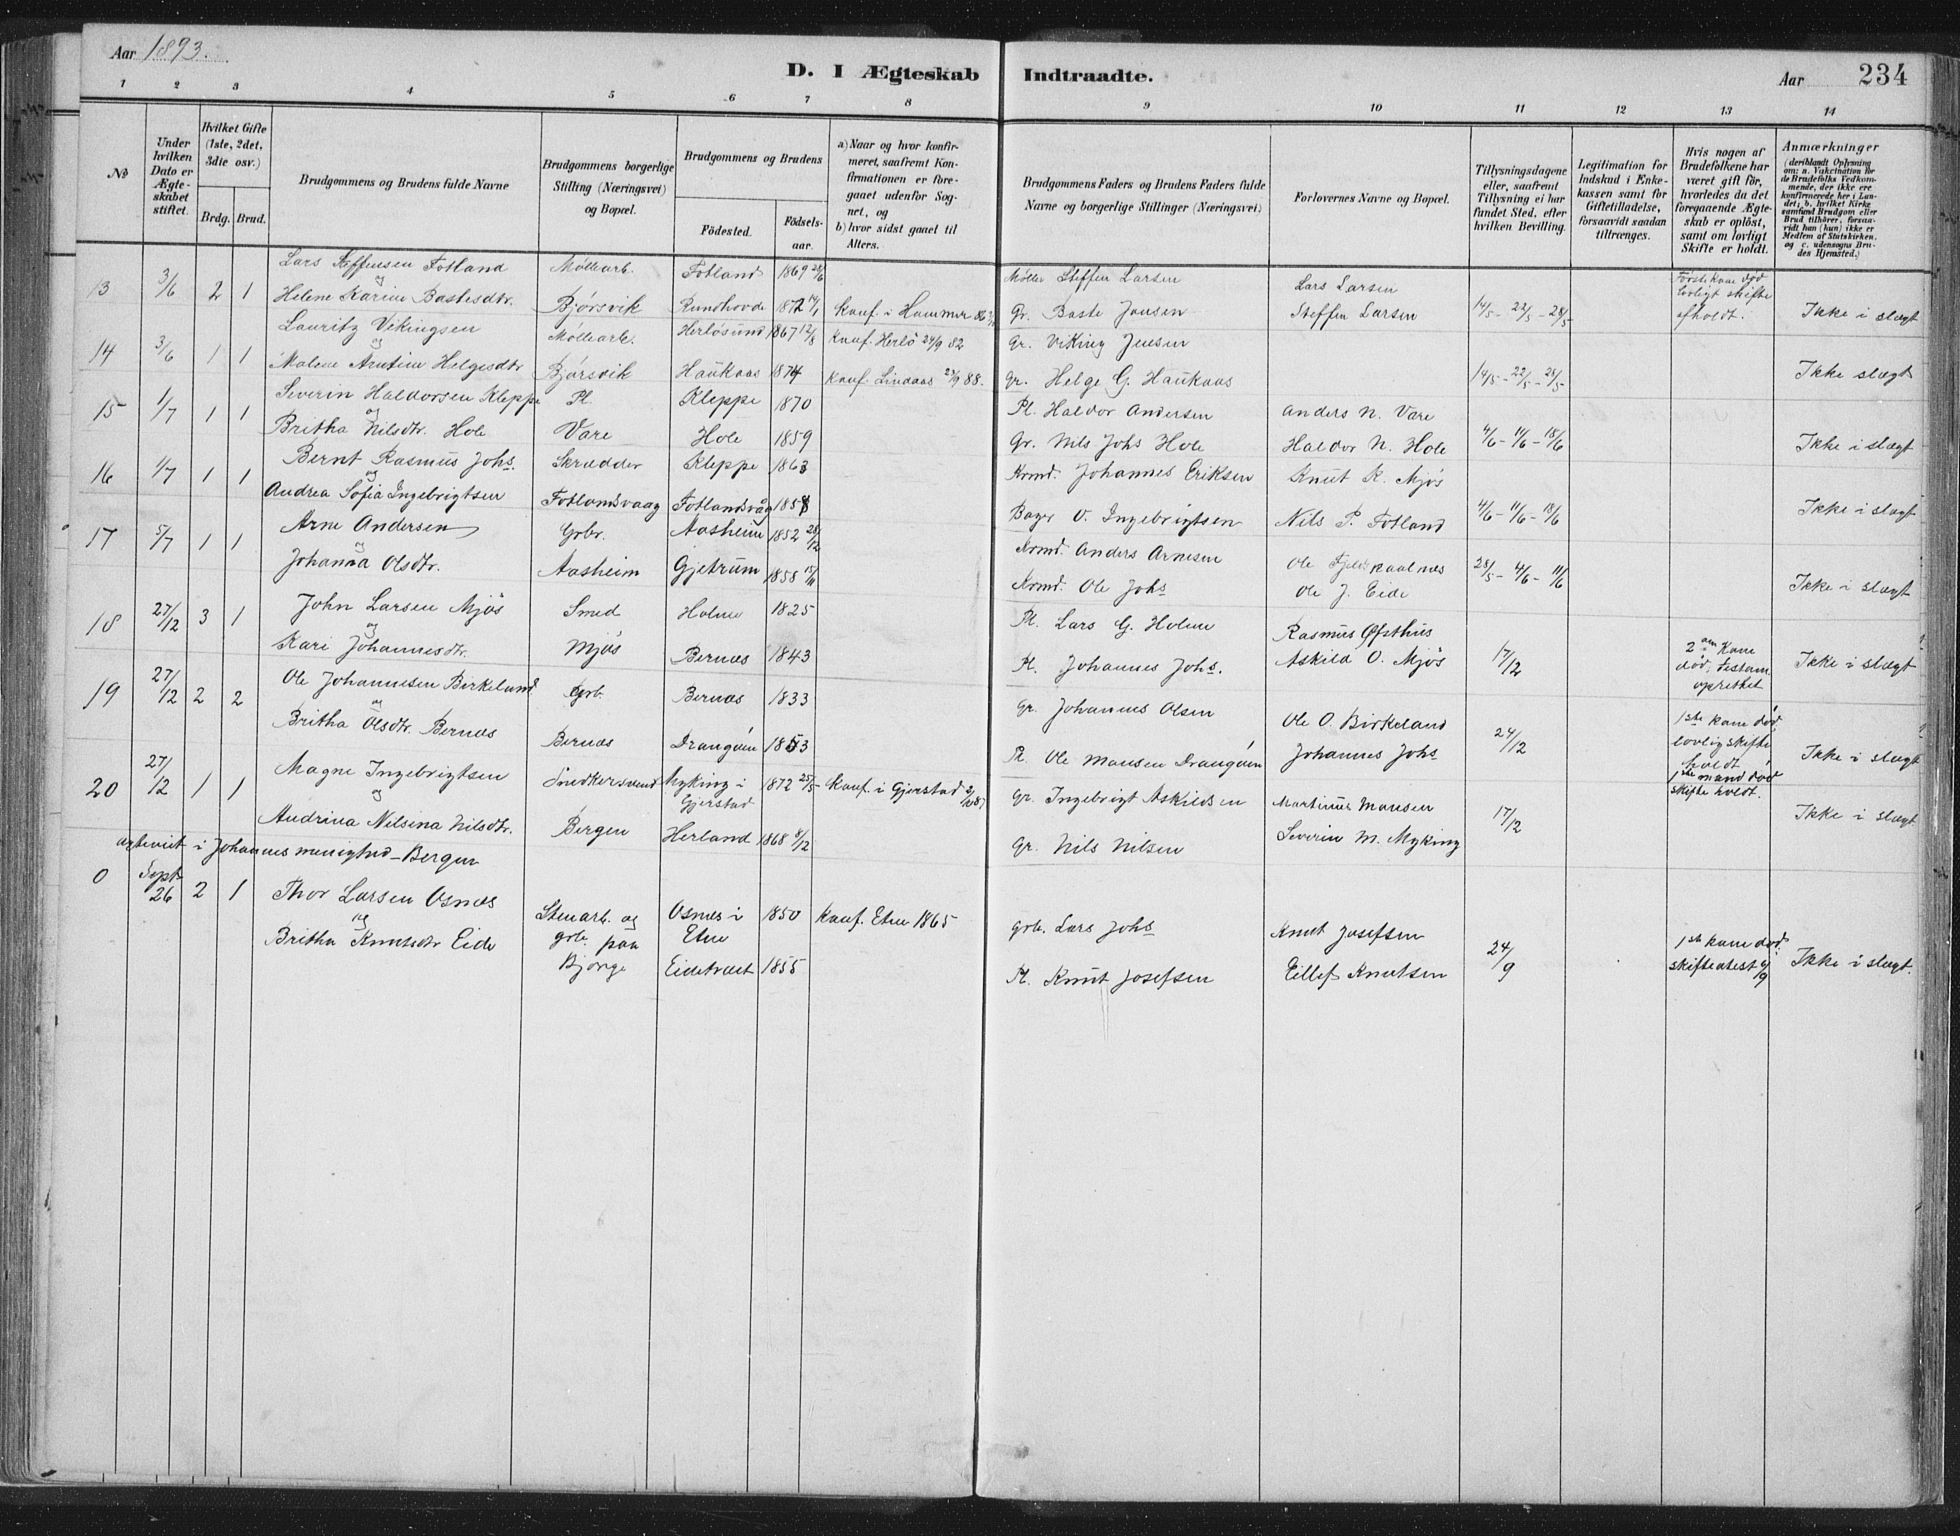 Aar 1893.
D. I Ægteskab Indtraadte.
Aar 234
1 2 3 4 5 6 7 8 9 10 11 12 13 14
No
Under hvilken Dato er Ægteskabet stiftet.
Hvilket Gifte (1ste, 2det, 3die osv.)
Brdg. Brud.
Brudgommens og Brudens fulde Navne
Brudgommens borgerlige Stilling (Næringsvei) og Bopæl.
Brudgommens og Brudens
Födested. Födselsaar.
a) Naar og hvor konfirmeret, saafremt Konfirmationen er foregaaet udenfor Sognet, og
b) hvor sidst gaaet til Alters.
Brudgommens Faders og Brudens Faders fulde Navne og borgerlige Stillinger (Næringsvei)
Forlovernes Navne og Bopæl.
Tillysningsdagene eller, saafremt Tillysning ei har fundet Sted, efter hvilken Bevilling.
Legitimation for Indskud i Enkekassen samt for Giftetilladelse, forsaavidt saadan tiltrænges.
Hvis nogen af Brudefolkene har været gift för, hvorledes da det foregaaende Ægteskab er oplöst, samt om lovligt Skifte er holdt.
Anmærkninger (deriblandt Oplysning om: a. Vakcination for de Brudefolks Vedkommende, der ikke ere konfirmerede her i Landet; b. hvilket Kirkesamfund Brudgom eller Brud tilhører, forsaavidt han (hun) ikke er Medlem af Statskirken, og c. udensogns Brudes Hjemsted.)
13 3/6 2 1 Lars Steffensen Fotland Möllearb. Fotland 1869 Mölle Steffen Larsen Lars Larsen Förste kone död
og Helene Karine Bastesdtr. Bjørsvik Rundhovde 1872 17/1 Konf. i Hammer 86 Gr. Baste Jansen Steffen Larsen 14/5 - 22/5 - 28/5 lovligt skifte afholdt. Ikke i slægt
14 3/6 1 1 Lauritz Vikingsen Möllearb. Herlösund 1867 12/8 Konf. Herlö 24/9 82 Gr. Viking Jensen
og Malene Helgesdtr Bjørsvik Haukaas 1874 Konf. Lindaas 23/9 88. Gr. Helge G. Haukaas 14/5 - 22/5 - 28/5 Ikke slægt
15 1/7 1 1 Severin Haldorsen Kleppe Pl. Kleppe 1870 Pl. Haldor Andersen Anders N. Vare
og Britha Nilsdtr. Hole Vare Hole 1859 Gr. Nils Johs Hole Haldor N. Hole 4/6 - 11/6 - 18/6 Ikke i slægt
16 1/7 1 1 Bernt Rasmus Johs. Skrædder Kleppe 1863 Krmd. Johannes Eriksen Knut K. Mjøs
og Andrea Sofia Ingebrigtsen Fotlandsvaag Fotlandsvåg 1858 Bager V. Ingebrigtsen Nils P. Fotland 4/6 - 11/6 - 18/6 Ikke i slægt
17 5/7 1 1 Arne Andersen Grbr. Aasheim 1852 28/12 Krmd. Anders Arnesen
og Johanna Olsdtr. Aasheim Gjetrum 1858 15/11 Krmd. Ole Johs Ole J. Eide 28/5 - 4/6 - 11/6 Ikke i slægt
18 27/12 3 1 John Larsen Mjøs Smed Holme 1825 Pl. Lars G. Holme Rasmus Øfsthus
og Kari Johannesdtr. Mjøs Bernæs 1843 Pl. Johannes Johs. Askild O. Mjøs 17/12 2den Kone død. testam. oprettet Ikke i slægt
19 27/12 2 2 Ole Johannesen Birkeland Grb. Bernæs 1833 Gr. Johannes Olsen Ole O. Birkeland
og Britha Olsdtr. Bernæs Bernæs Drangöen 1853 Pl. Ole Mansen Drangöen Johannes Johs 24/12 1ste kone död lovlig skifte holdt 1ste mand död skifte holdt. Ikke i slægt
20 27/12 1 1 Magne Ingebrigtsen Snedkersvend Myking i Gjerstad 1872 25/5 Konf. i Gjerstad Gr. Ingebrigt Askildsen Martinus Mansen
og Andrina Nilsena Nilsdtr. Bergen Herland 1868 8/12 Gr. Nils Nilsen Severin M. Myking 17/12 Ikke i slægt
ægteviet i Johannes menighed - Bergen
0 Sept 26 2 1 Thor Larsen Osnæs Stenarb. og Osnes i Etne 1850 Konf. Etne 1865 Grb. Lars Johs Knut Josefsen
og Britha Knutsdtr Eide grb. paa Bjørge Eidetræet 1855 Pl. Knut Josefsen Eillef Knutsen 24/9 1ste kone død. skifteatest 6/9 Ikke i slægt.